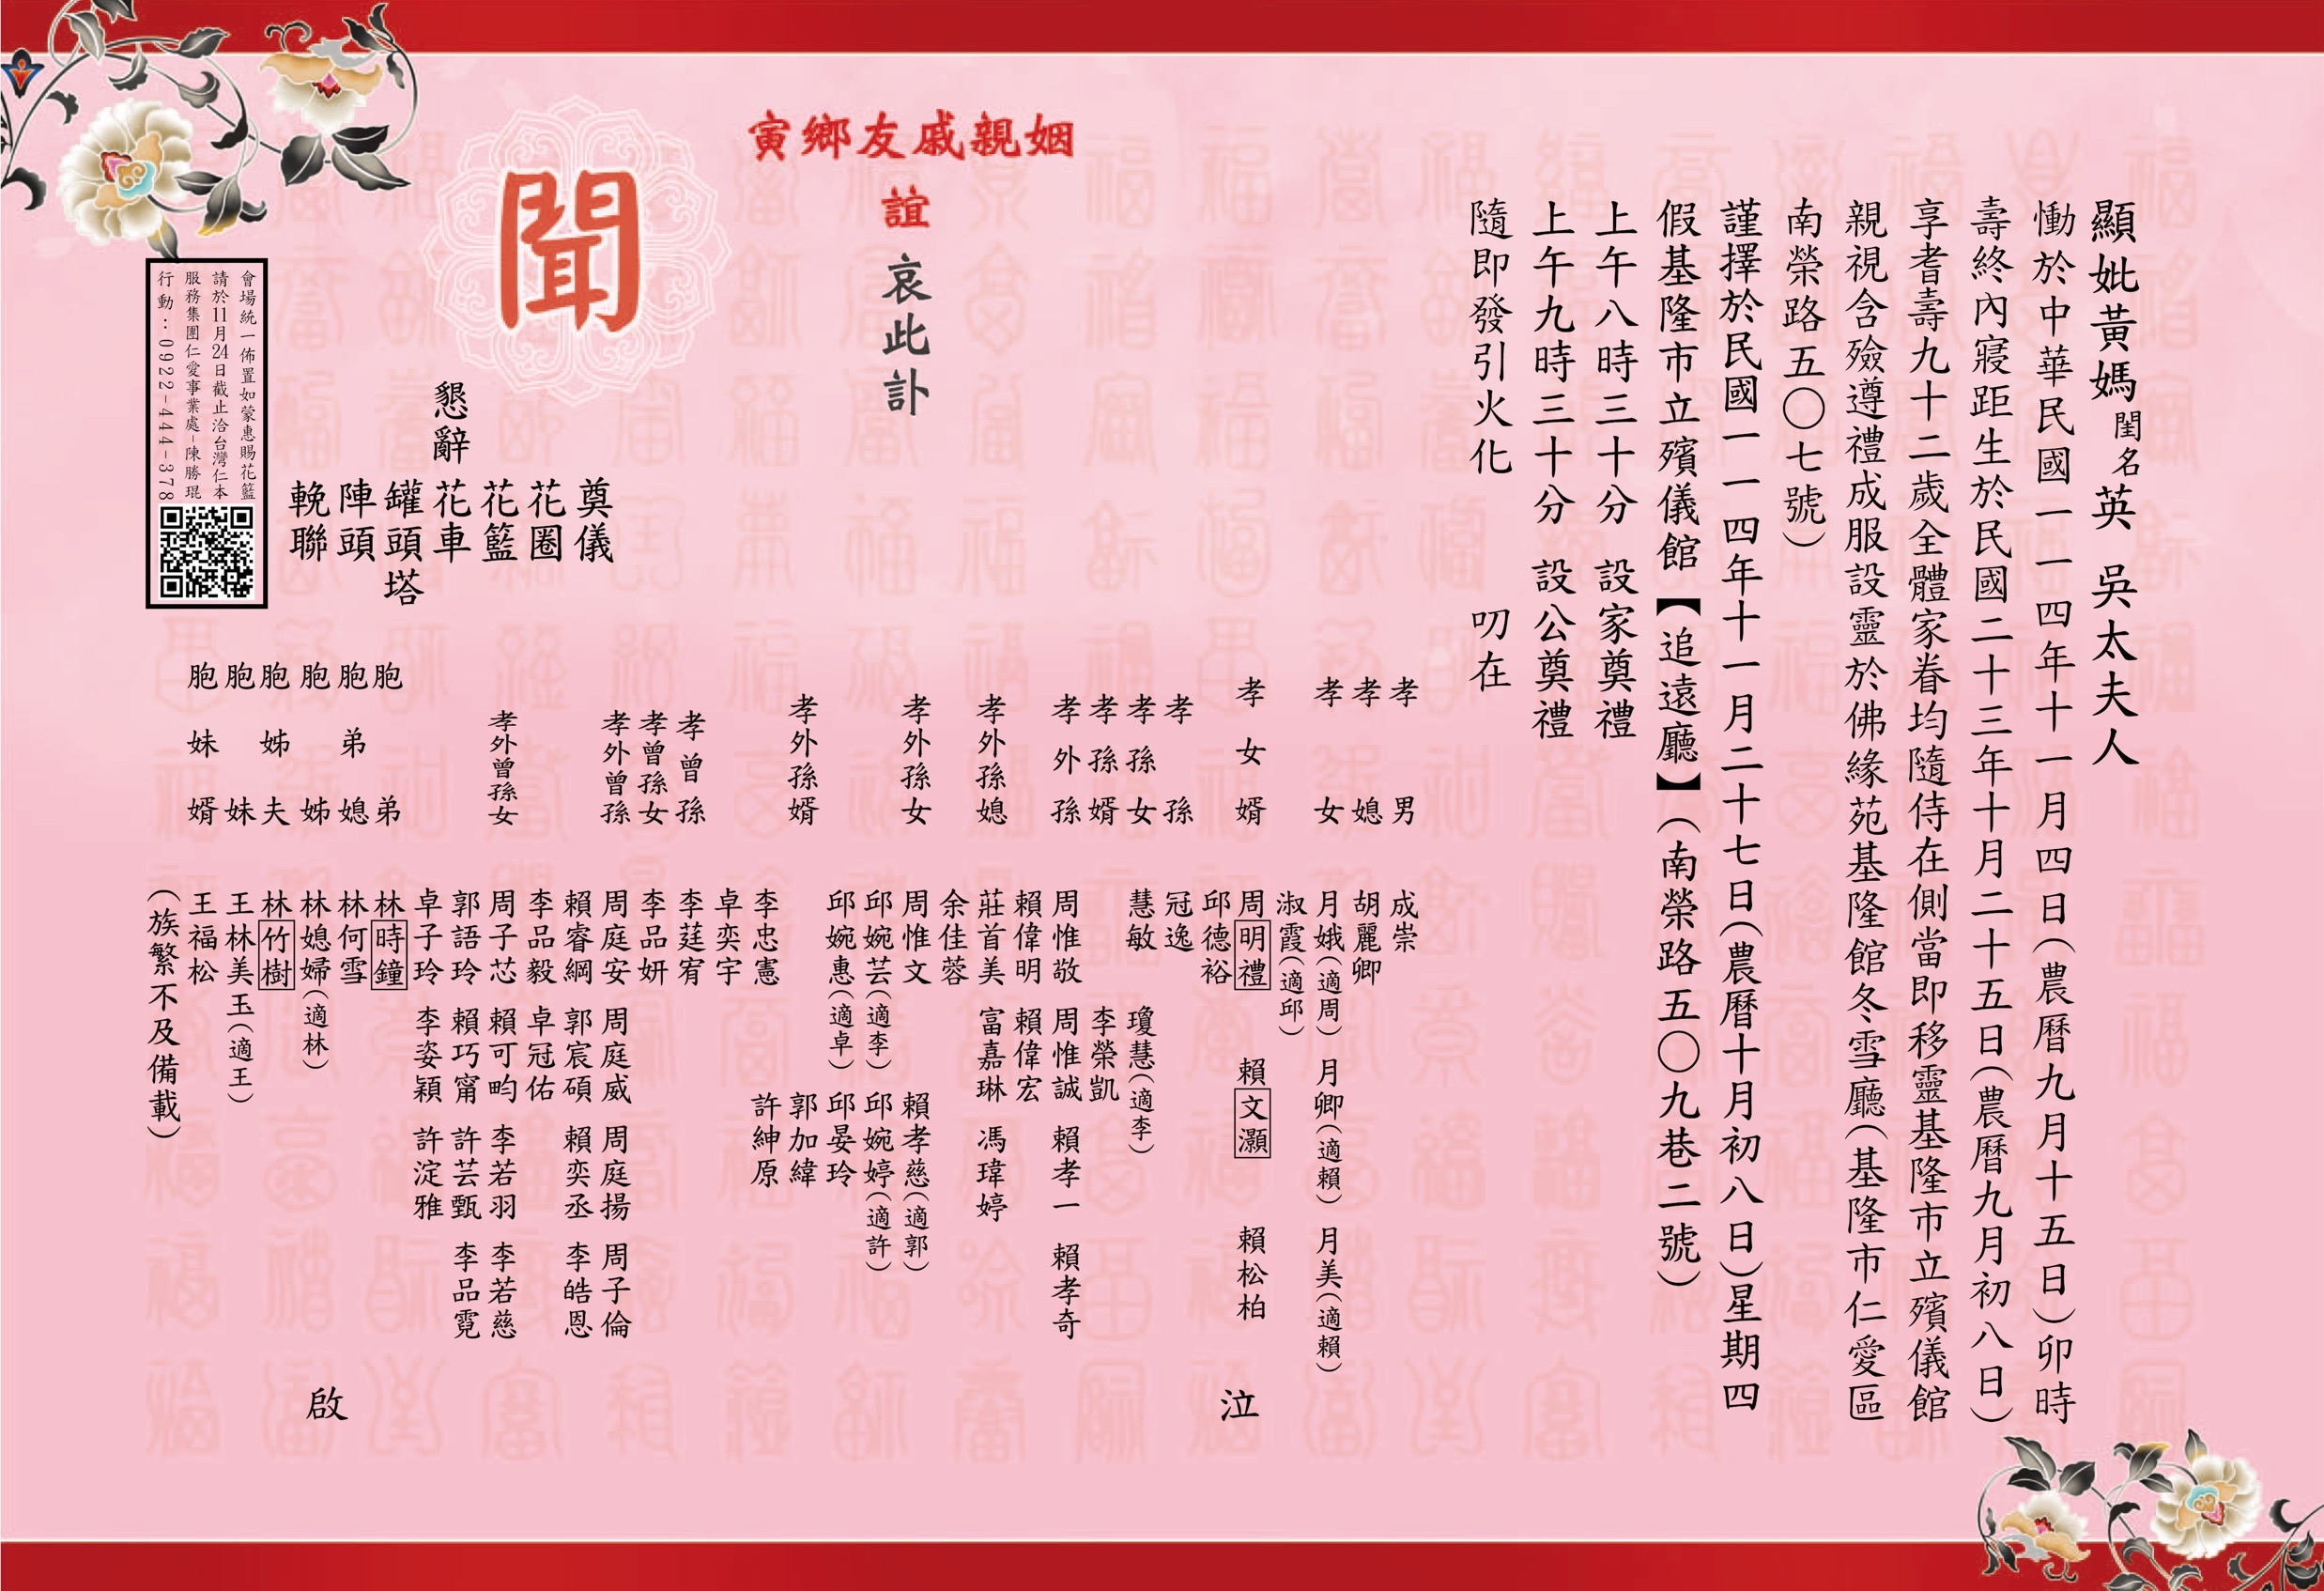 顯妣黃媽閨名英 吳太夫人
慟於中華民國一一四年十一月四日(農曆九月十五日)卯時
壽終內寢距生於民國二十三年十月二十五日(農曆九月初八日)
享耆壽九十二歲全體家眷均隨侍在側當即移靈基隆市立殯儀館
親視含殮遵禮成服設靈於佛緣苑基隆館冬雪廳(基隆市仁愛區
南榮路五〇七號)
謹擇於民國一一四年十一月二十七日(農曆十月初八日)星期四
假基隆市立殯儀館【追遠廳】(南榮路五〇九巷二號)
上午八時三十分 設家奠禮
上午九時三十分 設公奠禮
隨即發引火化 叨在
姻親戚友鄉寅
誼
哀此訃
聞
懇辭
奠儀
花圈
花籃
花車
罐頭塔
陣頭
輓聯
會場統一佈置如蒙惠賜花籃
請於11月24日截止洽台灣仁本
服務集團仁愛事業處-陳勝琨
行動:0922-444-378
孝男 成崇
孝媳 胡麗卿
孝女 月娥(適周) 月卿(適賴) 月美(適賴)
淑霞(適邱)
孝女婿 周明禮 賴文灝 賴松柏
邱德裕
孝孫 冠逸
孝孫女 慧敏 瓊慧(適李)
孝孫婿 李榮凱
孝外孫 周惟敬 周惟誠 賴孝一 賴孝奇
賴偉明 賴偉宏
孝外孫媳 莊首美 富嘉琳 馮瑋婷
余佳蓉
孝外孫女 周惟文 賴孝慈(適郭)
邱婉芸(適李) 邱婉婷(適許)
邱婉惠(適卓) 邱晏玲
孝外孫婿 郭加緯
李忠憲 許紳原
卓奕宇
孝曾孫 李莛宥
孝曾孫女 李品妍
孝外曾孫 周庭安 周庭威 周庭揚 周子倫
賴睿綱 郭宸碩 賴奕丞 李皓恩
李品毅 卓冠佑
孝外曾孫女 周子芯 賴可畇 李若羽 李若慈
郭語玲 賴巧甯 許芸甄 李品霓
卓子玲 李姿穎 許淀雅
胞弟 林時鐘
胞弟媳 林何雪
胞姊 林媳婦(適林)
胞姊夫 林竹樹
胞妹 王林美玉(適王)
胞妹婿 王福松
(族繁不及備載)
泣
啟